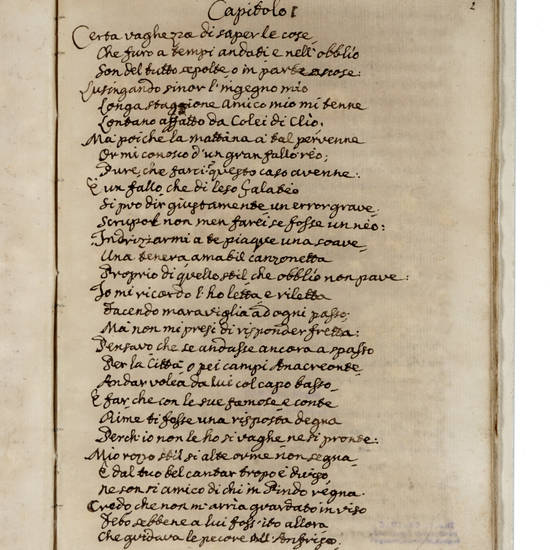 Capitolo I
2
Certa vaghezza di saper le cose,
Che furo a tempi andati e nell'obblio
Son del tutto sepolte o in parte ascose:
Lusingando sinor l'ingegno mio
Longa staggione amico mio mi tenne
Lontano affatto da Colei di Clio.
Ma poi che la mattina a tal pervenne
Or mi conosco d'un gran fallo reo;
Pure, che farci? questo caso avenne:
È un fallo, che di leso Galateo
Si può dir giustamente un error grave,
Scrupol non men farei se fosse un neo:
Indrizzarmi a te piaque una soave,
Una tenera amabil canzonetta
Proprio di quello stil che obblio non pave:
Io mi ricordo l'ho letta e riletta
Facendo maraviglia ad ogni passo;
Mai non mi presi di risponder fretta:
Pensavo che se andasse ancora a spasso
Per la Città o pei campi Anacreonte
Andar volea da lui col capo basso,
E far che con le sue famose e conte
Rime ti fosse una risposta degna
Perch'io non le ho si vaghe ne si pronte:
Mio rozo stil si alte orme non segna,
E dal tuo bel cantar tropo è diviso,
Ne son si amico di chi in Pindo regna.
Credo che non m'arria guardato in viso
Febo sebbene a lui foss'ito allora
Che guidava le pecore dell'Anfriso.